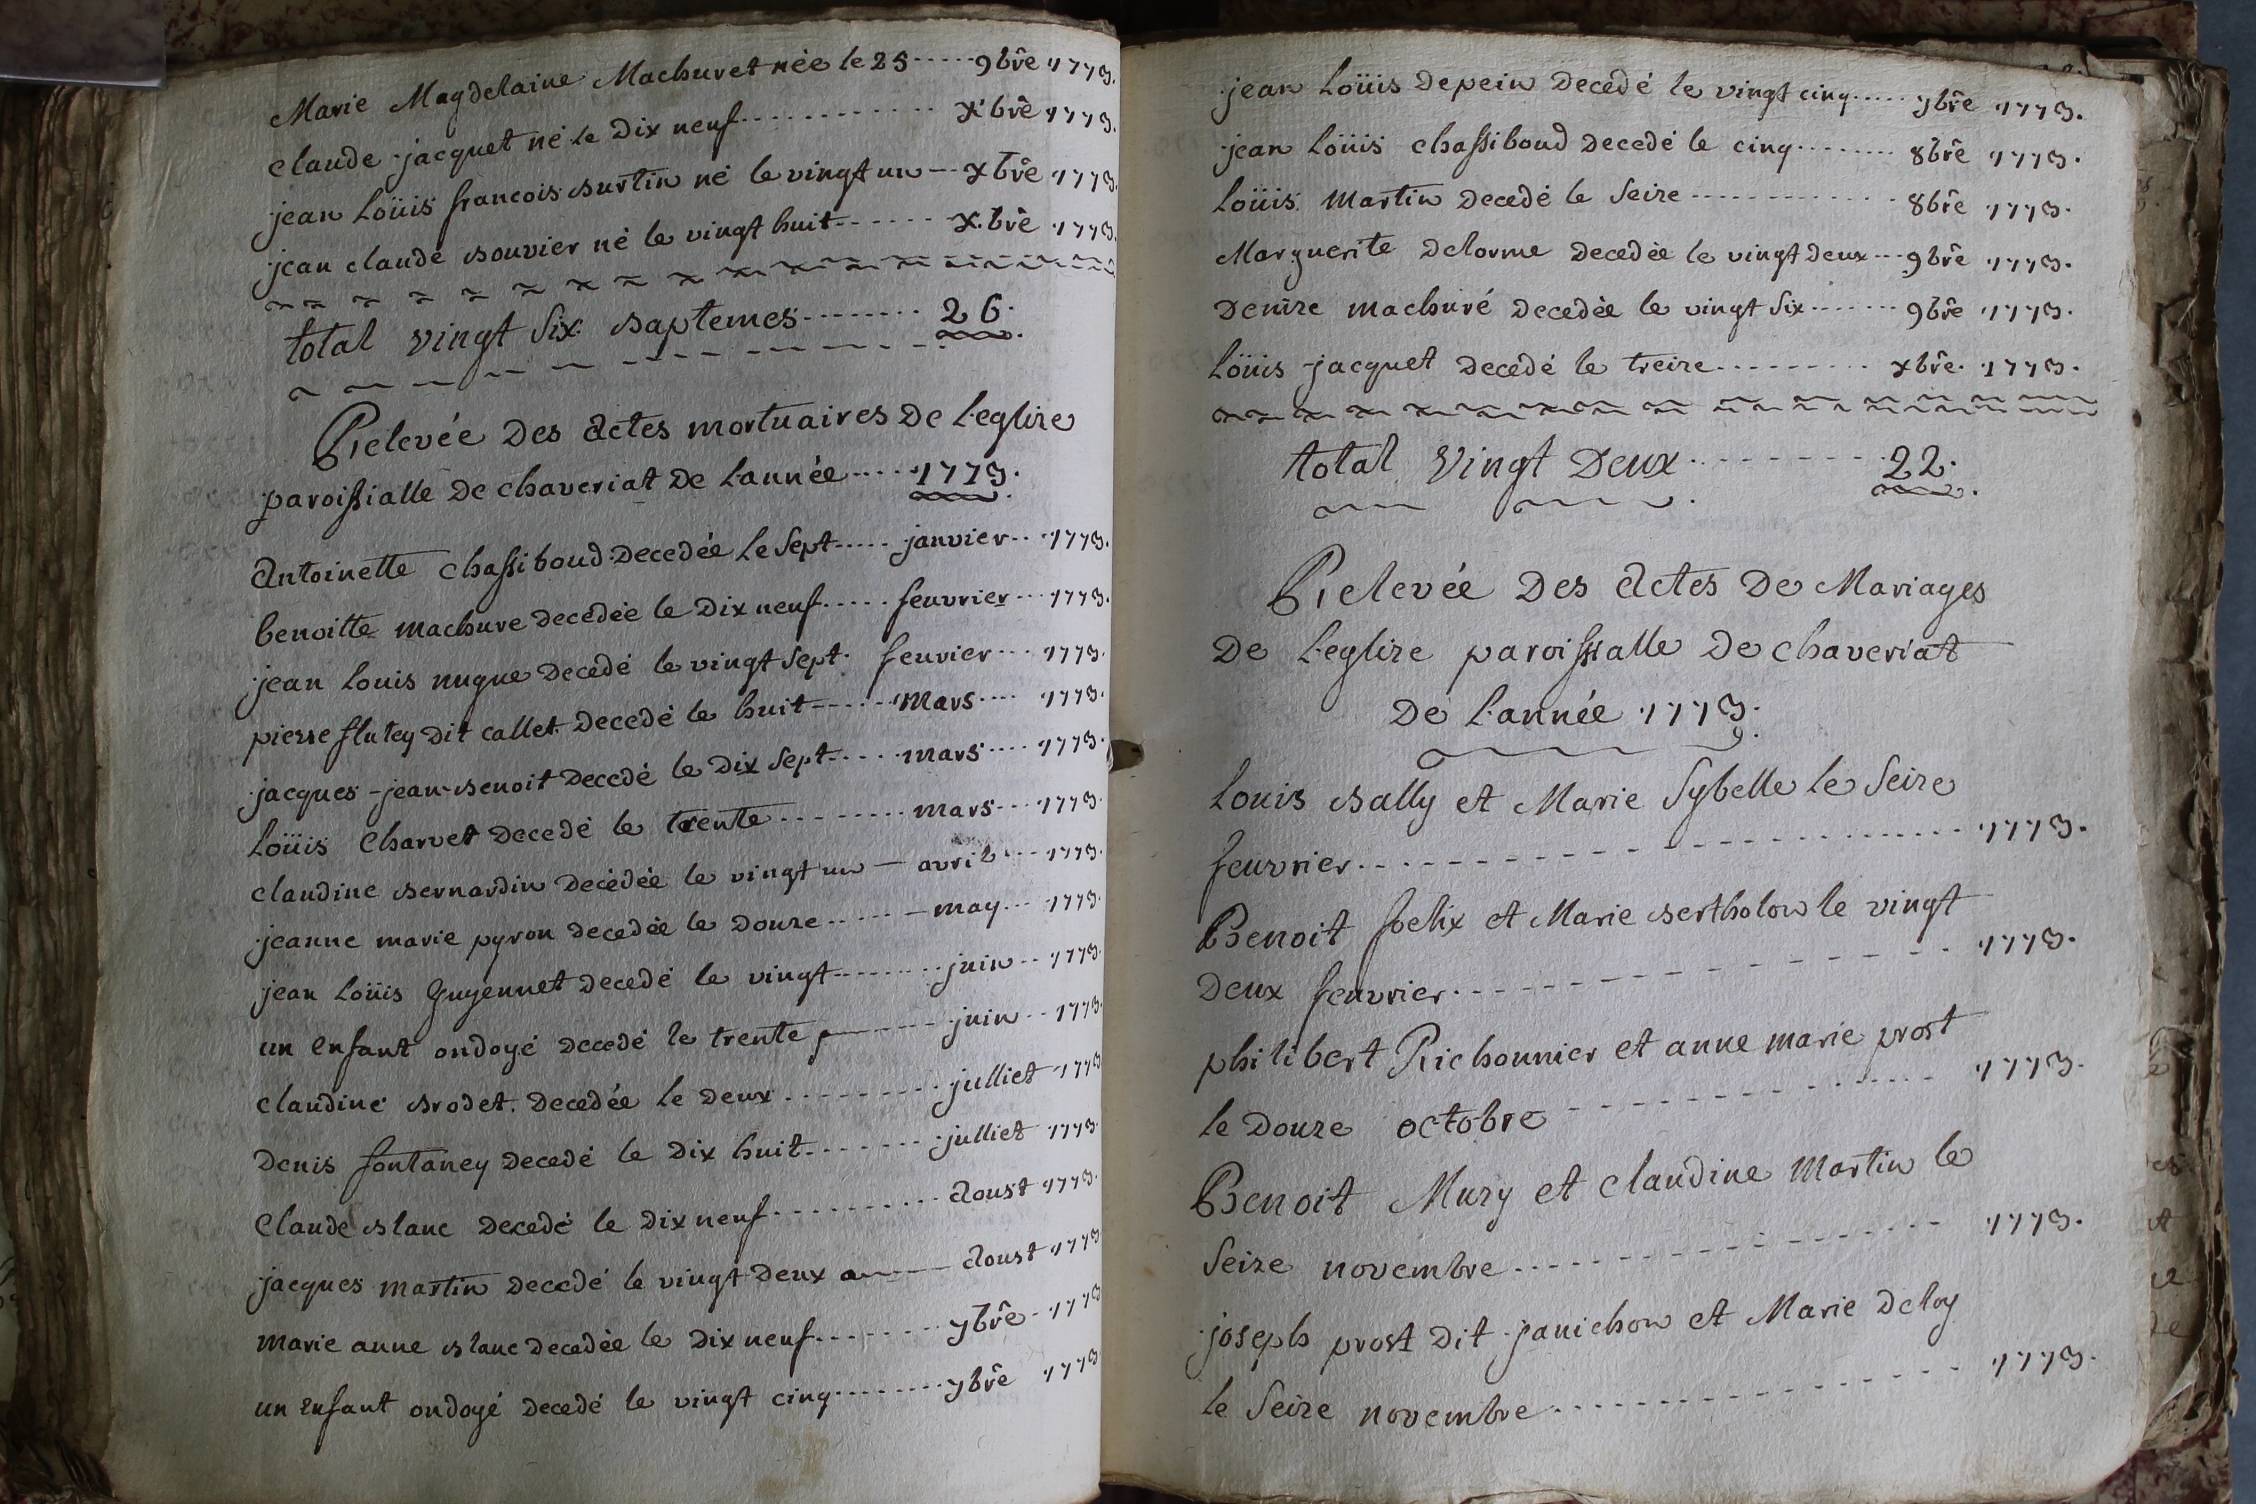 Marie Magdelaine Machuret née le 25 ----- 9bre 1773.
claude jacquet né le Dix neuf ------------ Xbre 1773.
jean Loüis francois Burtin né le vingt un -- Xbre 1773.
jean claude Bouvier né le vingt huit ------- X.bre 1773.
total vingt Six Baptemes -------- 26.
Relevée Des Actes mortuaires De L'eglize
paroissialle De chaveriat De L'année ---- 1773.
Antoinette chassiboud Decedée Le Sept ----- janvier -- 1773.
benoitte machuve Decedée le Dix neuf ----- feuvrier --- 1773.
jean Louis nugue Decedé le vingt Sept. feuvier --- 1773.
pierre flutey Dit callet. Decedé le huit ------ Mars ---- 1773.
jacques -jean-Benoit Decedé le Dix Sept ----- mars ---- 1773.
Loüis Charvet Decedé le trente --------- mars --- 1773.
claudine Bernardin Decédée le vingt un — avril --- 1773.
jeanne marie pyron decedée le Douze ------- may --- 1773.
jean Loüis Guyennet decedé le vingt -------- juin -- 1773.
un enfant ondoyé decedé le trente ------ juin -- 1773.
claudine Brodet. Decedée le Deux --------- julliet 1773
Denis fontaney Decedé le Dix huit. ------- julliet 1773.
Claude Blanc Decedé le Dix neuf ---------- Aoust 1773.
jacques martin decedé le vingt Deux ------ Aoust 1773
marie anne Blanc Decedée le Dix neuf ------- 7bre - 1773
un enfant ondoyé decedé le vingt cinq -------- 7bre 1773
jean Loüis Depein Decedé le vingt cinq ----- 7bre 1773.
jean Loüis chassiboud Decedé le cinq -------- 8bre 1773.
Loüis Martin Decedé le Seize ------------ 8bre 1773.
Marguerite Delorme Decedée le vingt Deux --- 9bre 1773.
Denize machuré Decedée le vingt Six ------- 9bre 1773.
Loüis jacquet Decedé le treize --------- xbre. 1773.
total Vingt Deux --------- 22.
Relevée Des Actes De Mariages
De L'eglize paroissialle De chaveriat
De L'année 1773.
Louis Bally et Marie Sybelle le Seize
feuvrier ---------------------- 1773.
Benoit felix et Marie Bertholon le vingt
Deux feuvrier. -------------- 1773.
philibert Richonnier et anne marie prost
le Douze octobre -------------- 1773.
Benoit Mury et Claudine Martin le
Seize novembre ---------------- 1773.
joseph prost Dit janichon et Marie Deloy
le Seize novembre -------------- 1773.